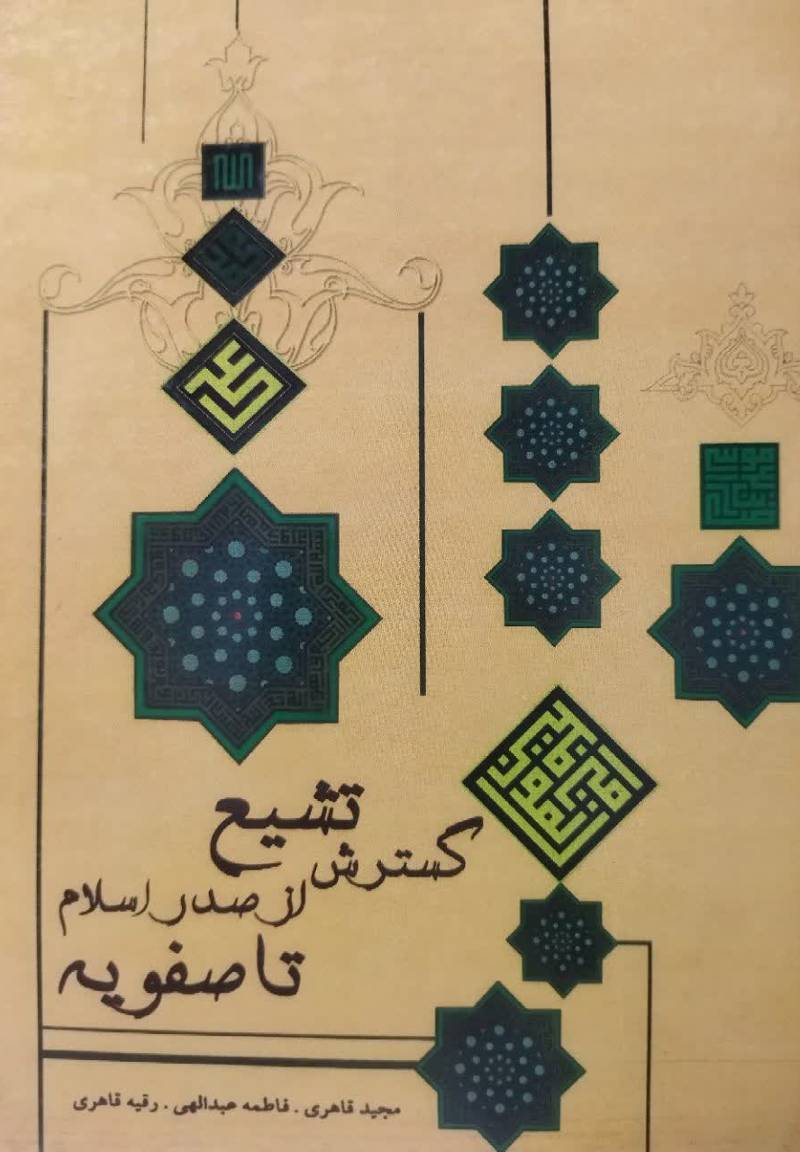 الله
علی
امیرالمؤمنین
گسترش تشیع
از صدر اسلام
تا صفویه
مجید قاهری . فاطمه عبدالهی . رقیه قاهری